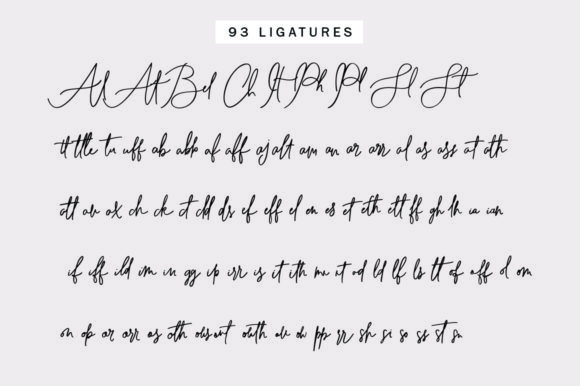 93 LIGATURES
Al At Bel Ch It Ph Pl Sl St
tt ttle tu uff ab abb af aff aj alt am an ar arr al as ass at ath
att av ax ch ck ct dd ds ef eff el en es et eth ett ff gh lh ia ian
if iff ild im in gg ip irr is it ith mu nt od ld lf ls lt of off ol om
on op or orr os oth ous out outh ov ow pp rr sh si so ss st su